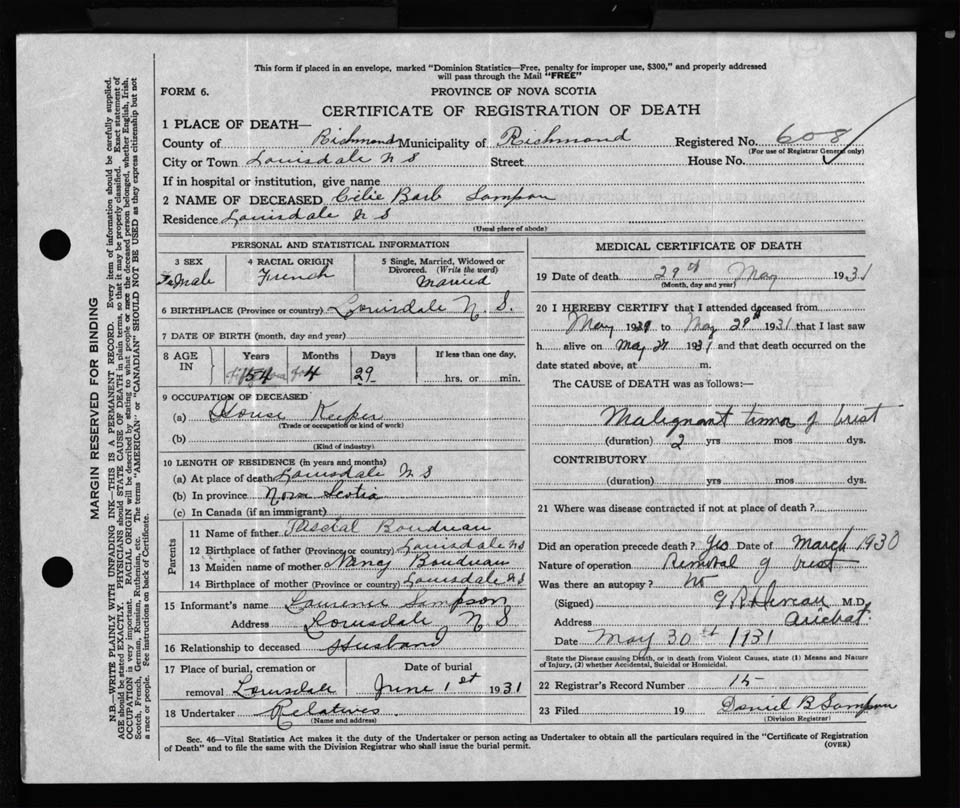 This form if placed in an envelope, marked "Dominion Statistics—Free, penalty for improper use, $300," and properly addressed
will pass through the Mail "FREE"
FORM 6.
PROVINCE OF NOVA SCOTIA
CERTIFICATE OF REGISTRATION OF DEATH
1 PLACE OF DEATH—
County of Richmond Municipality of Richmond Registered No. 608
(For use of Registrar General only)
City or Town Louisdale N S Street House No.
If in hospital or institution, give name
2 NAME OF DECEASED Célie Barb Sampson
Residence Louisdale N S
(Usual place of abode)
PERSONAL AND STATISTICAL INFORMATION
3 SEX
Female
4 RACIAL ORIGIN
French
5 Single, Married, Widowed or
Divorced. (Write the word)
Married
6 BIRTHPLACE (Province or country) Louisdale N S.
7 DATE OF BIRTH (month, day and year)
8 AGE
IN
Years
54
Months
4
Days
29
If less than one day,
hrs. or min.
9 OCCUPATION OF DECEASED
(a) House Keeper
(Trade or occupation or kind of work)
(b)
(Kind of industry)
10 LENGTH OF RESIDENCE (in years and months)
(a) At place of death Louisdale N S
(b) In province Nova Scotia
(c) In Canada (if an immigrant)
Parents
11 Name of father Paschal Boudreau
12 Birthplace of father (Province or country) Louisdale N S
13 Maiden name of mother Nancy Boudreau
14 Birthplace of mother (Province or country) Louisdale N S
15 Informant's name Laurence Sampson
Address Louisdale N S
16 Relationship to deceased Husband
17 Place of burial, cremation or
removal Louisdale
Date of burial
June 1st 1931
18 Undertaker Relatives
(Name and address)
MEDICAL CERTIFICATE OF DEATH
19 Date of death 29th May 1931
(Month, day and year)
20 I HEREBY CERTIFY that I attended deceased from
May 1931 to May 29th 1931 that I last saw
h alive on May 27 1931 and that death occurred on the
date stated above, at m.
The CAUSE OF DEATH was as follows:—
Malignant tumor of brest
(duration) 2 yrs mos dys.
CONTRIBUTORY
(duration) yrs mos dys.
21 Where was disease contracted if not at place of death?
Did an operation precede death? Yes Date of March 1930
Nature of operation Removal of brest
Was there an autopsy? No
(Signed) M.D.
Address Arichat.
Date May 30th 1931
State the Disease causing Death, or in death from Violent Causes, state (1) Means and Nature
of Injury, (2) whether Accidental, Suicidal or Homicidal.
22 Registrar's Record Number 15
23 Filed 19 Daniel B Sampson
(Division Registrar)
Sec. 46—Vital Statistics Act makes it the duty of the Undertaker or person acting as Undertaker to obtain all the particulars required in the "Certificate of Registration
of Death" and to file the same with the Division Registrar who shall issue the burial permit.
(OVER)
MARGIN RESERVED FOR BINDING
N.B.—WRITE PLAINLY WITH UNFADING INK—THIS IS A PERMANENT RECORD. Every item of information should be carefully supplied.
AGE should be stated EXACTLY. PHYSICIANS should STATE CAUSE OF DEATH in plain terms, so that it may be properly classified. Exact statement of
OCCUPATION is very important. RACIAL ORIGIN will be described by stating to what people or race the deceased person belonged, whether English, Irish,
Scotch, French, German, Russian, Ruthenian, etc. The terms "AMERICAN" or "CANADIAN" SHOULD NOT BE USED as they express citizenship but not
a race or people. See instructions on back of Certificate.